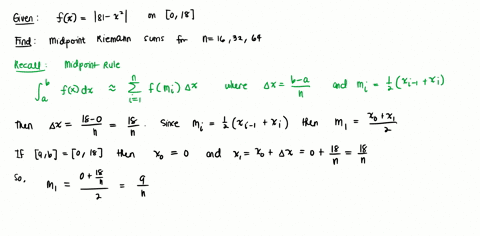 Given: f(x) = |81-x²| on [0, 18]
Find: Midpoint Riemann sums for n=16, 32, 64
Recall: Midpoint Rule
∫ₐᵇ f(x)dx ≈ ∑ᵢ₌₁ⁿ f(mᵢ) Δx where Δx = (b-a)/n and mᵢ = ½(xᵢ₋₁ + xᵢ)
Then Δx = (18-0)/n = 18/n. Since mᵢ = ½(xᵢ₋₁ + xᵢ) then m₁ = (x₀+x₁)/2
If [a,b] = [0, 18] then x₀ = 0 and x₁ = x₀ + Δx = 0 + 18/n = 18/n
So, m₁ = (0 + 18/n)/2 = 9/n